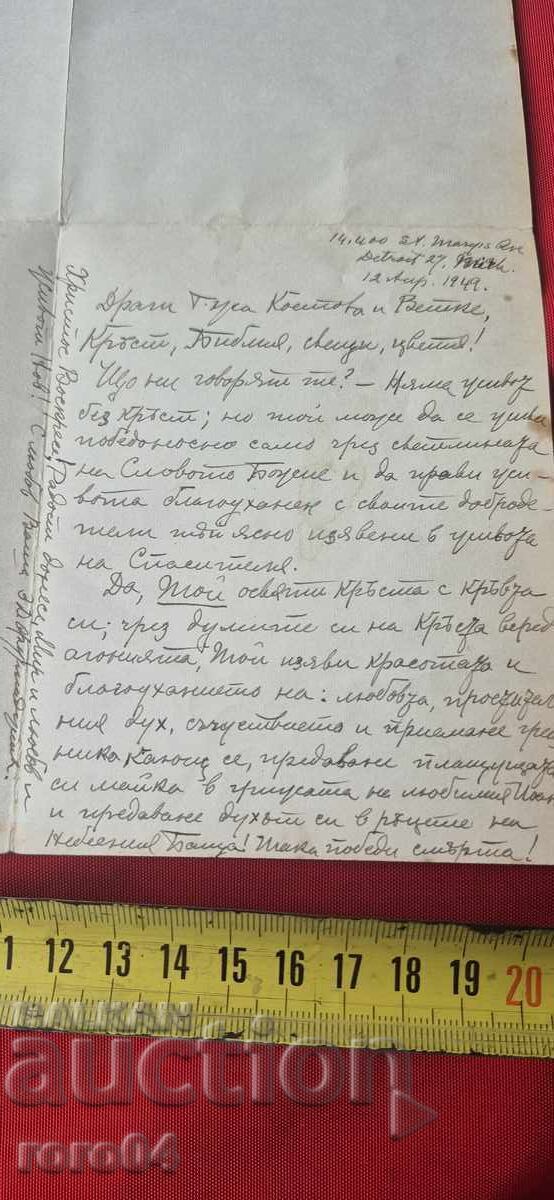 14,400 St. Mary's Ave
Detroit 27, Mich.
12 Апр. 1949.
Драги Г-жа Костова и Ветке,
Кръст, Библия, свещи, цветя!
Що ни говорят те? – Няма живот
без кръст; но той може да се живѣ
победоносно само чрез светлината
на Словото Божие и да прави жи-
вота благоуханен с своите доброде-
тели тъй ясно изявени в живота
на Спасителя.
Да, Той освяти Кръста с Кръвта
си; чрез думите си на Кръста всред
агонията, Той изяви красотата и
благоуханието на: любовта, простител-
ния дух, съчувствието и приемане греш-
ника каюощ се, предаване плачущата
си майка в грижата на любимия Иоан
и предаване духът си в ръцете на
Небесния Баща! Така победи смърта!
Христос Воскресе! Радост донесе, Мир и любов и
живот Нов! С любов Ваша
11 12 13 14 15 16 17 18 19 20
BALKAN
auction
roro04